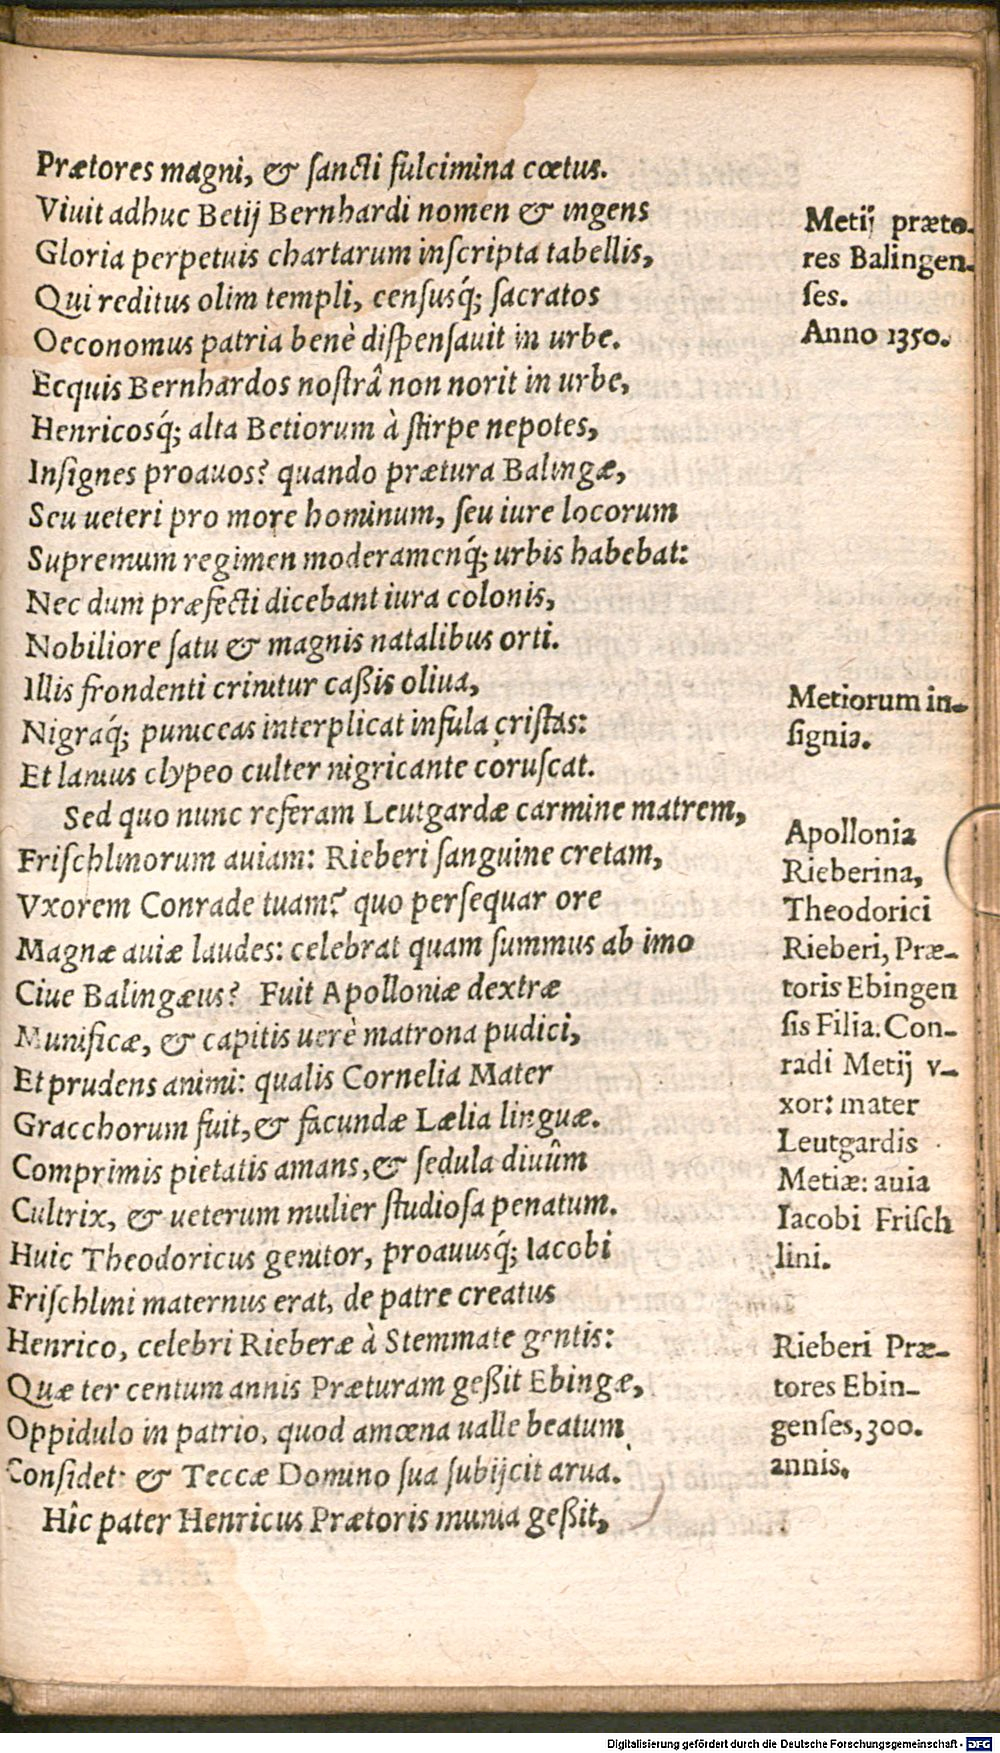 Prætores magni, & sancti fulcimina cœtus.
Viuit adhuc Betij Bernhardi nomen & ingens
Gloria perpetuis chartarum inscripta tabellis,
Qui reditus olim templi, censusq́; sacratos
Oeconomus patria benè dispensauit in urbe.
Ecquis Bernhardos nostrâ non norit in urbe,
Henricosq́; alta Betiorum à stirpe nepotes,
Insignes proauos? quando prætura Balingæ,
Seu ueteri pro more hominum, seu iure locorum
Supremum regimen moderamenq́; urbis habebat:
Nec dum præfecti dicebant iura colonis,
Nobiliore satu & magnis natalibus orti.
Illis frondenti crinitur caßis oliua,
Nigraq́; puniceas interplicat infula cristas:
Et lanius clypeo culter nigricante coruscat.
Sed quo nunc referam Leutgardæ carmine matrem,
Frischlinorum auiam: Rieberi sanguine cretam,
Vxorem Conrade tuam? quo persequar ore
Magnæ auiæ laudes: celebrat quam summus ab imo
Ciue Balingæus? Fuit Apolloniæ dextræ
Munificæ, & capitis uerè matrona pudici,
Et prudens animi: qualis Cornelia Mater
Gracchorum fuit, & facundæ Lælia linguæ.
Comprimis pietatis amans, & sedula diuûm
Cultrix, & ueterum mulier studiosa penatum.
Huic Theodoricus genitor, proauusq́; Iacobi
Frischlini maternus erat, de patre creatus
Henrico, celebri Rieberæ à Stemmate gentis:
Quæ ter centum annis Præturam geßit Ebingæ,
Oppidulo in patrio, quod amœna ualle beatum
Considet: & Teccæ Domino sua subijcit arua.
Hîc pater Henricus Prætoris munia geßit,
Metij præto-
res Balingen-
ses.
Anno 1350.
Metiorum in-
signia.
Apollonia
Rieberina,
Theodorici
Rieberi, Præ-
toris Ebingen
sis Filia. Con-
radi Metij v-
xor: mater
Leutgardis
Metiæ: auia
Iacobi Frisch
lini.
Rieberi Præ-
tores Ebin-
genses, 300.
annis.
Digitalisierung gefördert durch die Deutsche Forschungsgemeinschaft - DFG